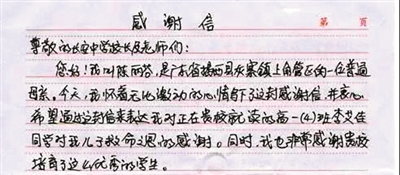 感谢信
第 页
尊敬的长安中学校长及老师们：
您好！我叫陈丽芬，是广东省揭西县灰寨镇上角管区的一位普通
母亲。今天，我怀着无比激动的心情写下这封感谢信，并衷心
希望通过这封信来表达我对正在贵校就读的高一(4)班李文佳
同学对我儿子救命之恩的感谢。同时，我也非常感谢贵校
培育了这么优秀的学生。